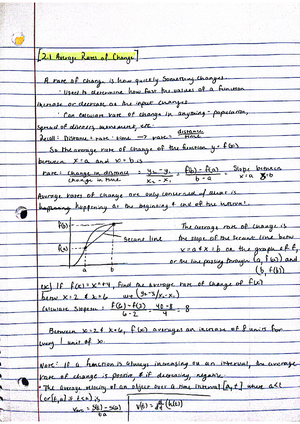 [2.1 Average Rates of Change]
A rate of change is how quickly something changes
· Used to determine how fast the values of a function
increase or decrease as the input changes
· Can calculate rate of change in anything - population,
spread of disease, movement, etc.
Recall: Distance = rate · time → rate = distance/time
So the average rate of change of the function y = f(x)
between x=a and x=b is
rate = change in distance/change in time = y₂ - y₁/x₂ - x₁ = f(b) - f(a)/b - a = Slope between x=a x=b
Average rates of change are only concerned w/ what is
happening at the beginning & end of the interval.
f(b)
f(a)
a b
Secant line
The average rate of change is
the slope of the secant line between
x=a & x=b on the graph of f,
or the line passing through (a, f(a)) and
(b, f(b))
ex] If f(x)=x²+4, find the average rate of change of f(x)
betw x=2 & x=6 use (y₂-y₁/x₂-x₁)
Calculate Slope = f(6)-f(2)/6-2 = 40-8/4 = 8
Between x=2 & x=6, f(x) averages an increase of 8 units for
every 1 unit of x.
Note: If a function is always increasing on an interval, the average
rate of change is positive, & if decreasing, negative.
· The average velocity of an object over a time interval [a,b]